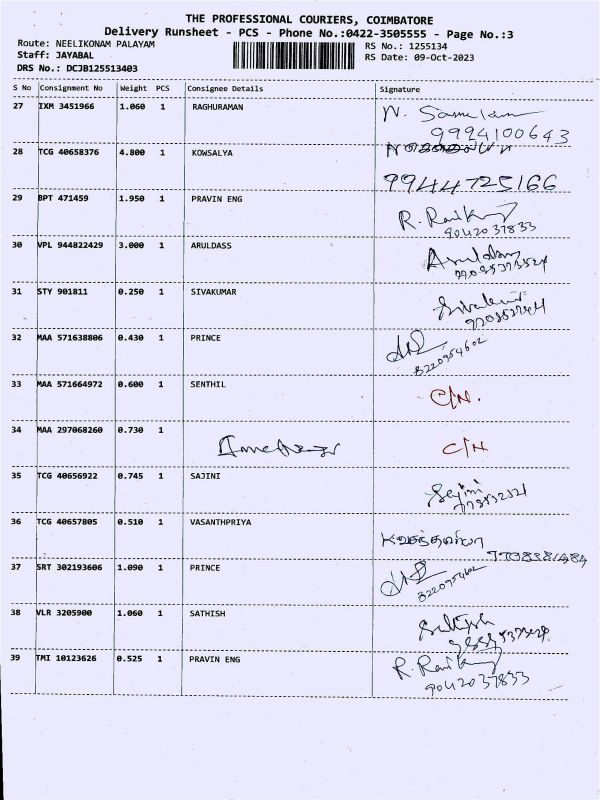 THE PROFESSIONAL COURIERS, COIMBATORE
Delivery Runsheet - PCS - Phone No.:0422-3505555 - Page No.:3
Route: NEELIKONAM PALAYAM RS No.: 1255134
Staff: JAYABAL RS Date: 09-Oct-2023
DRS No.: DCJB125513403
S No Consignment No Weight PCS Consignee Details Signature
27 IXM 3451966 1.060 1 RAGHURAMAN
9994100643
28 TCG 40658376 4.800 1 KOWSALYA
9944725166
29 BPT 471459 1.950 1 PRAVIN ENG R. Ravi
9042037833
30 VPL 944822429 3.000 1 ARULDASS Aruldass
31 STY 901811 0.250 1 SIVAKUMAR Sivakumar
32 MAA 571638806 0.430 1 PRINCE
8220954602
33 MAA 571664972 0.600 1 SENTHIL C/N.
34 MAA 297068260 0.730 1 C/N
35 TCG 40656922 0.745 1 SAJINI Sajini
36 TCG 40657805 0.510 1 VASANTHPRIYA
7708381484
37 SRT 302193606 1.090 1 PRINCE
8220954602
38 VLR 3205900 1.060 1 SATHISH Sathish
39 TMI 10123626 0.525 1 PRAVIN ENG R. Ravi
9042037833